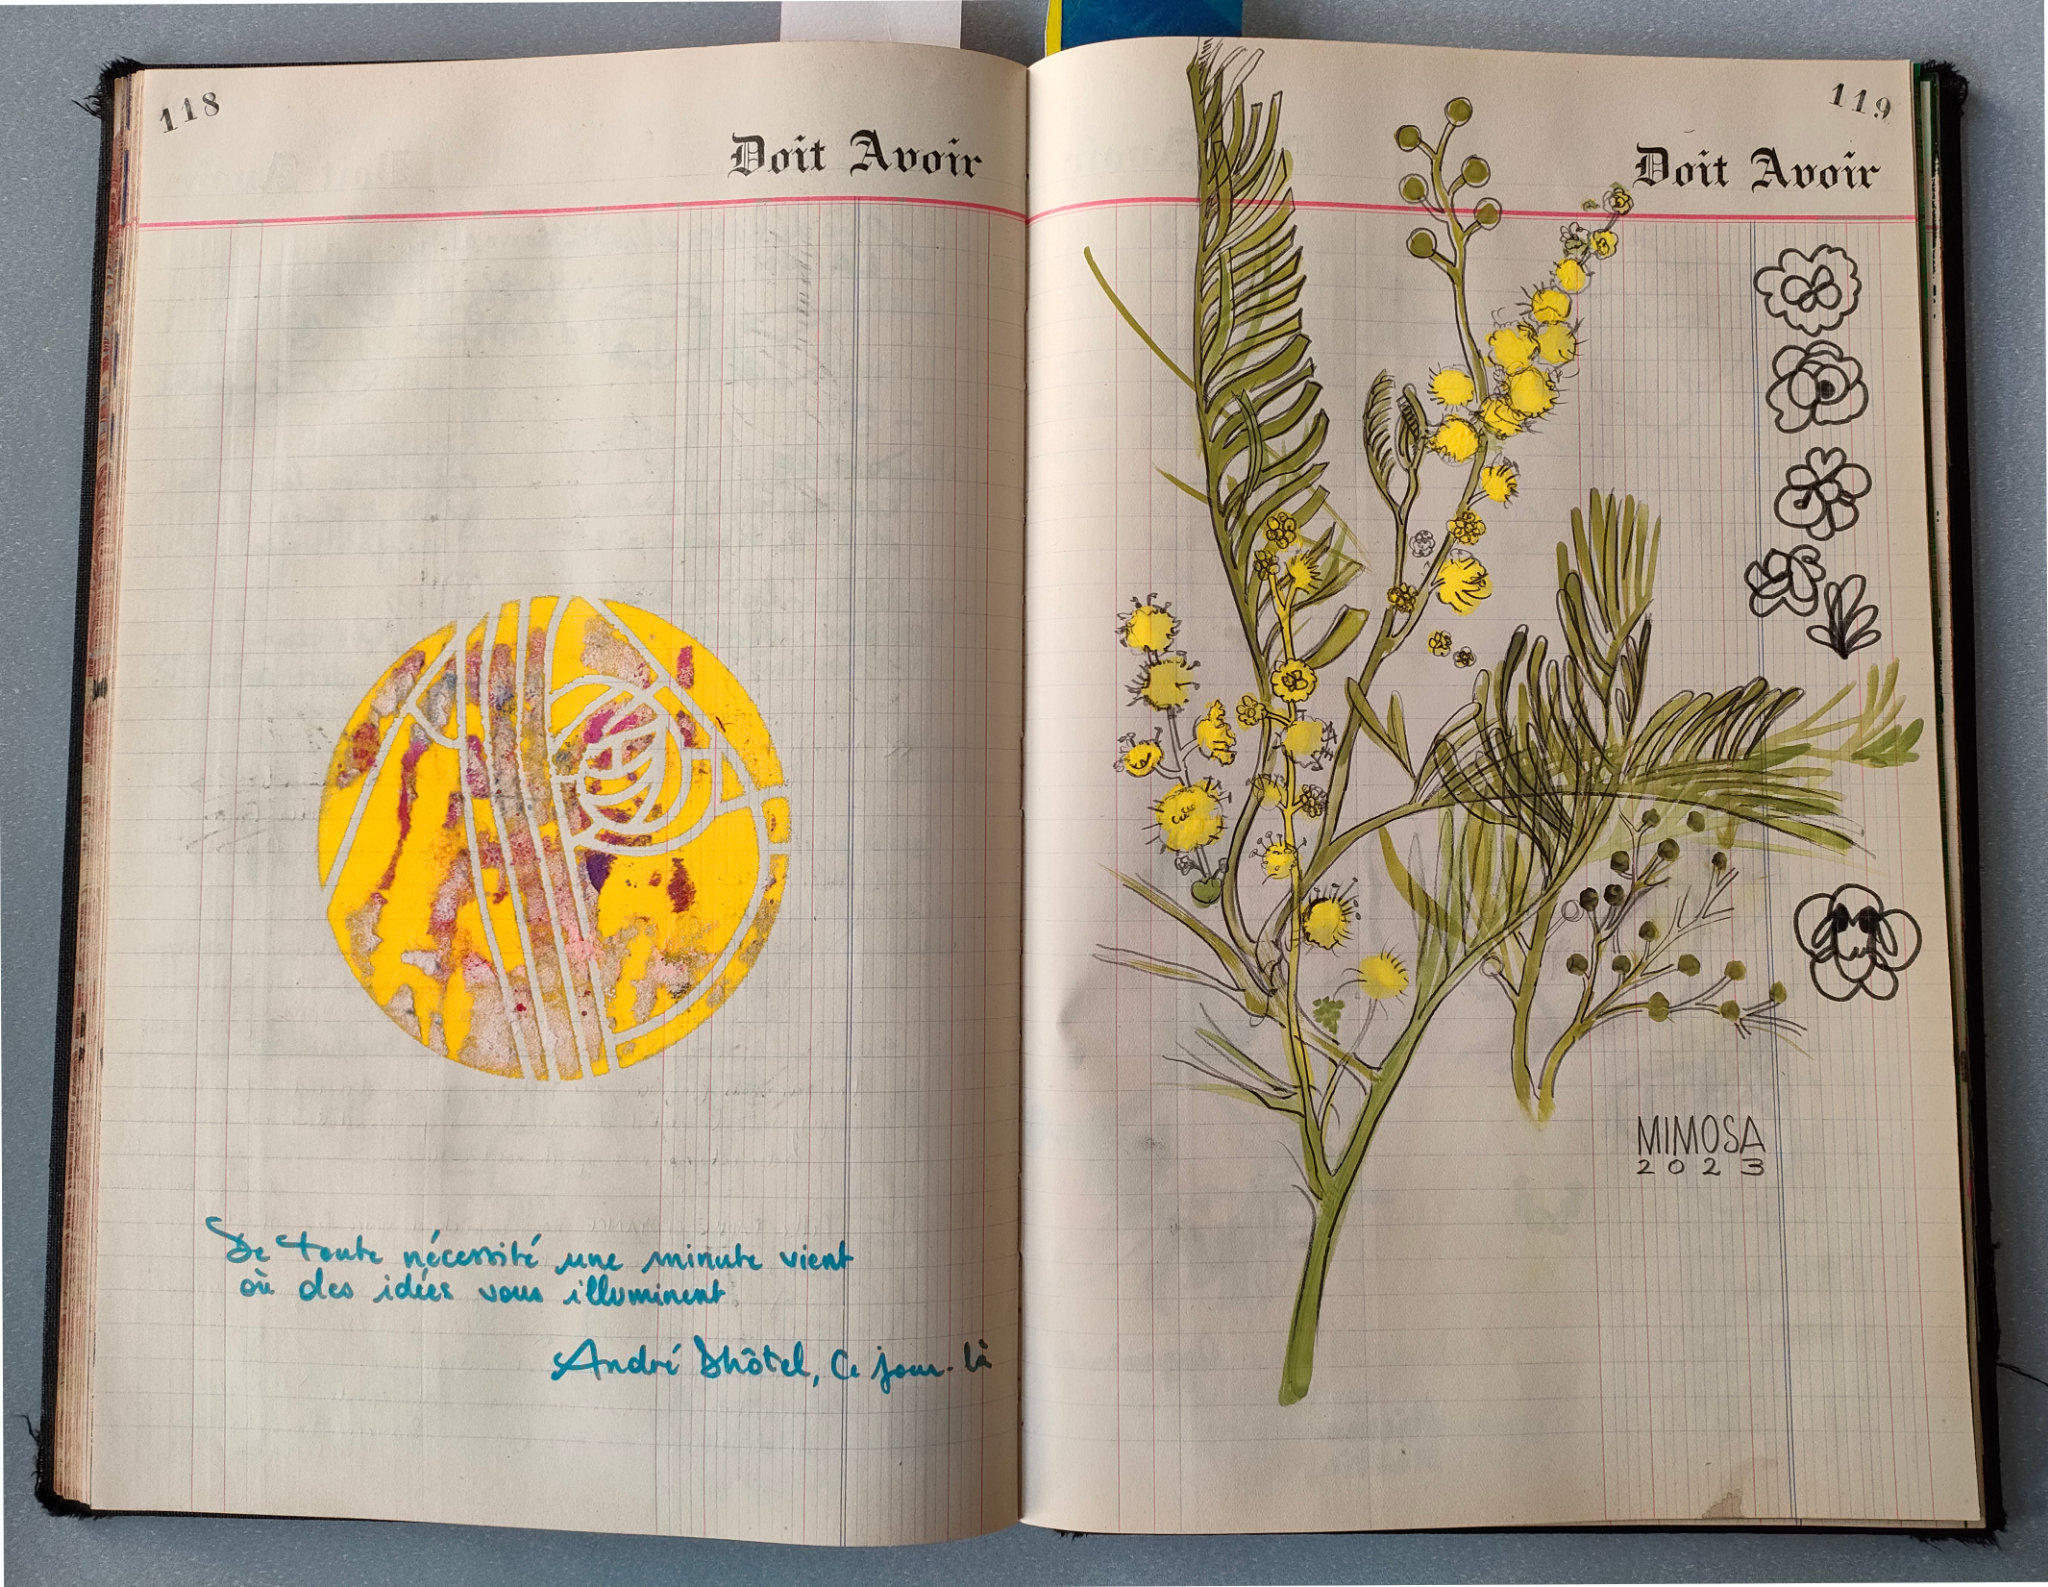 118
Doit Avoir
De toute nécessité une minute vient
où des idées vous illuminent
André Dhôtel, Ce jour-là
119
Doit Avoir
MIMOSA
2023